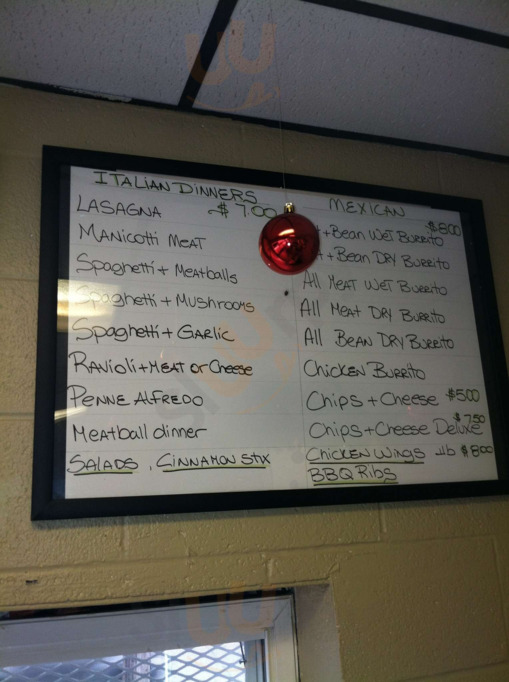 ITALIAN DINNERS
LASAGNA $7.00
MANICOTTI MEAT
Spaghetti + Meatballs
Spaghetti + Mushrooms
Spaghetti + GARLIC
RAVIOLI + MEAT or Cheese
PENNE ALFREDO
Meatball dinner
SALADS, CINNAMON STIX
MEXICAN
$8.00
+ Bean WET BURRITO
+ Bean DRY BURRITO
All MEAT WET BURRITO
All MEAT DRY BURRITO
All BEAN DRY BURRITO
CHICKEN BURRITO
Chips + Cheese $5.00
$7.50
Chips + Cheese Deluxe
CHICKEN WINGS lb $8.00
BBQ Ribs